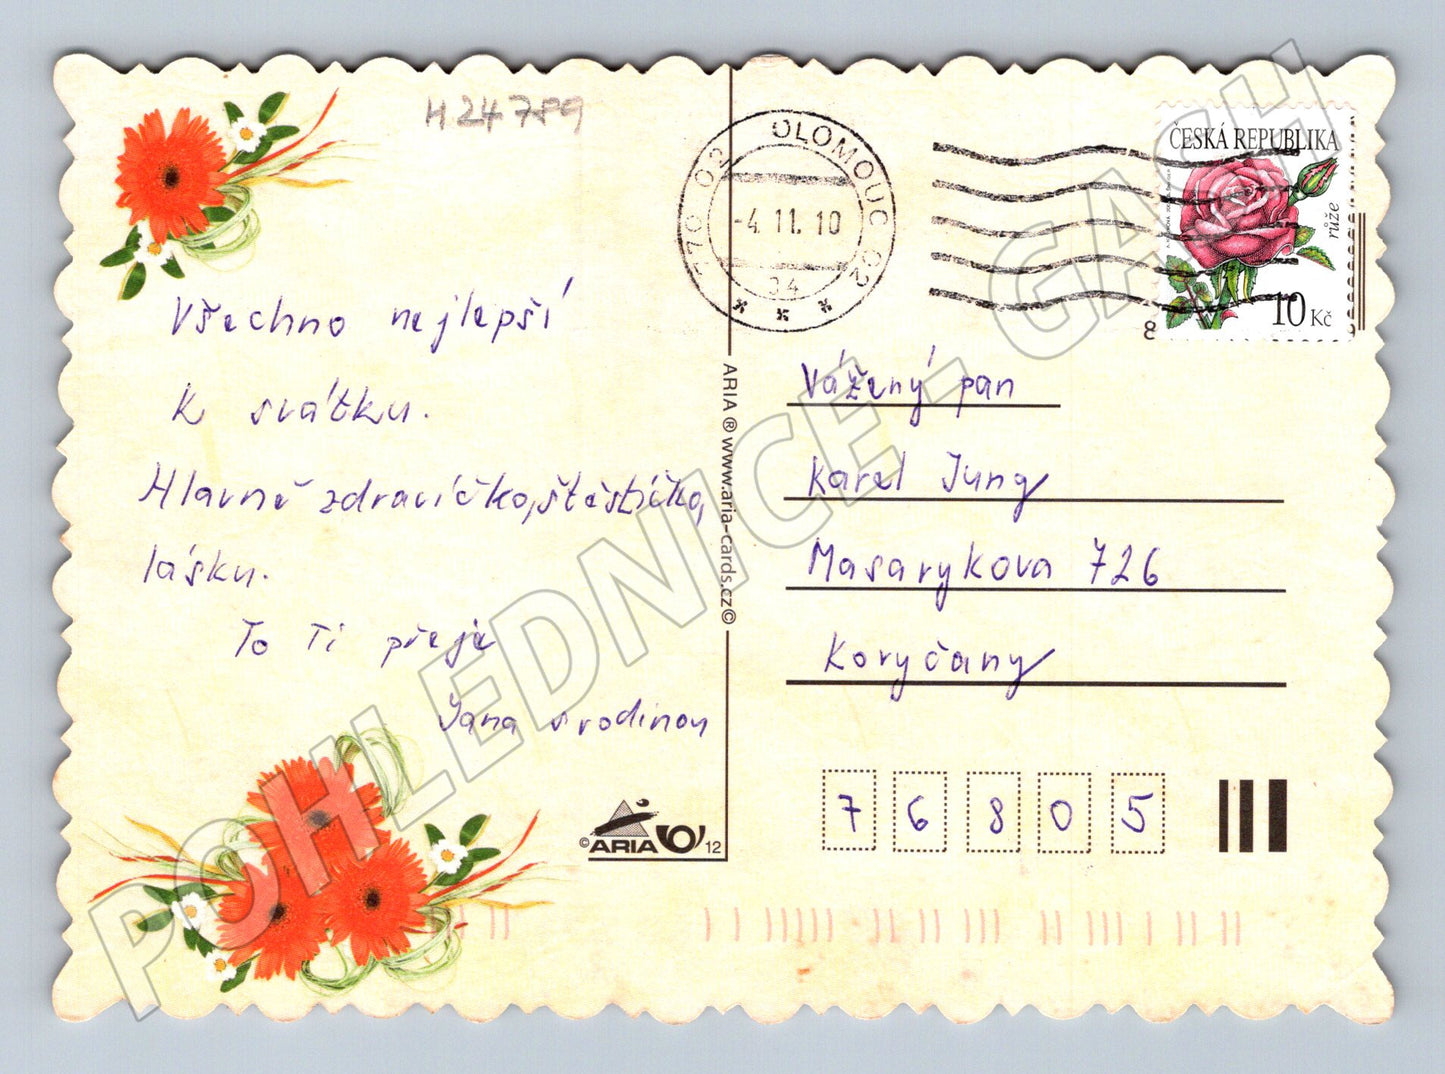 H24789
770 02 OLOMOUC 02
-4.11.10
34
ČESKÁ REPUBLIKA
růže
10 Kč
8
Všechno nejlepší
K svátku.
Hlavně zdravíčko, štěstíčko,
lásku.
To Ti přeje
Jana s rodinou
ARIA ® www.aria-cards.cz©
Vážený pan
Karel Jung
Masarykova 726
Koryčany
76805
© ARIA 12
POHLEDNICE - GASH